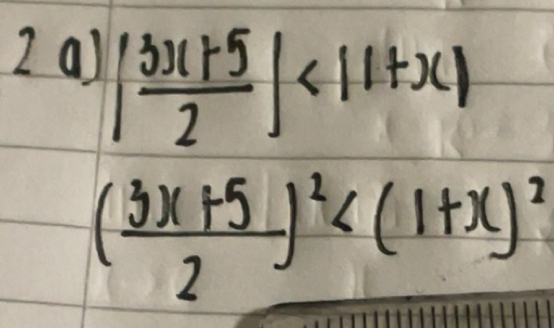 2 a) |3x+5/2| < |1+x|
(3x+5/2)² < (1+x)²